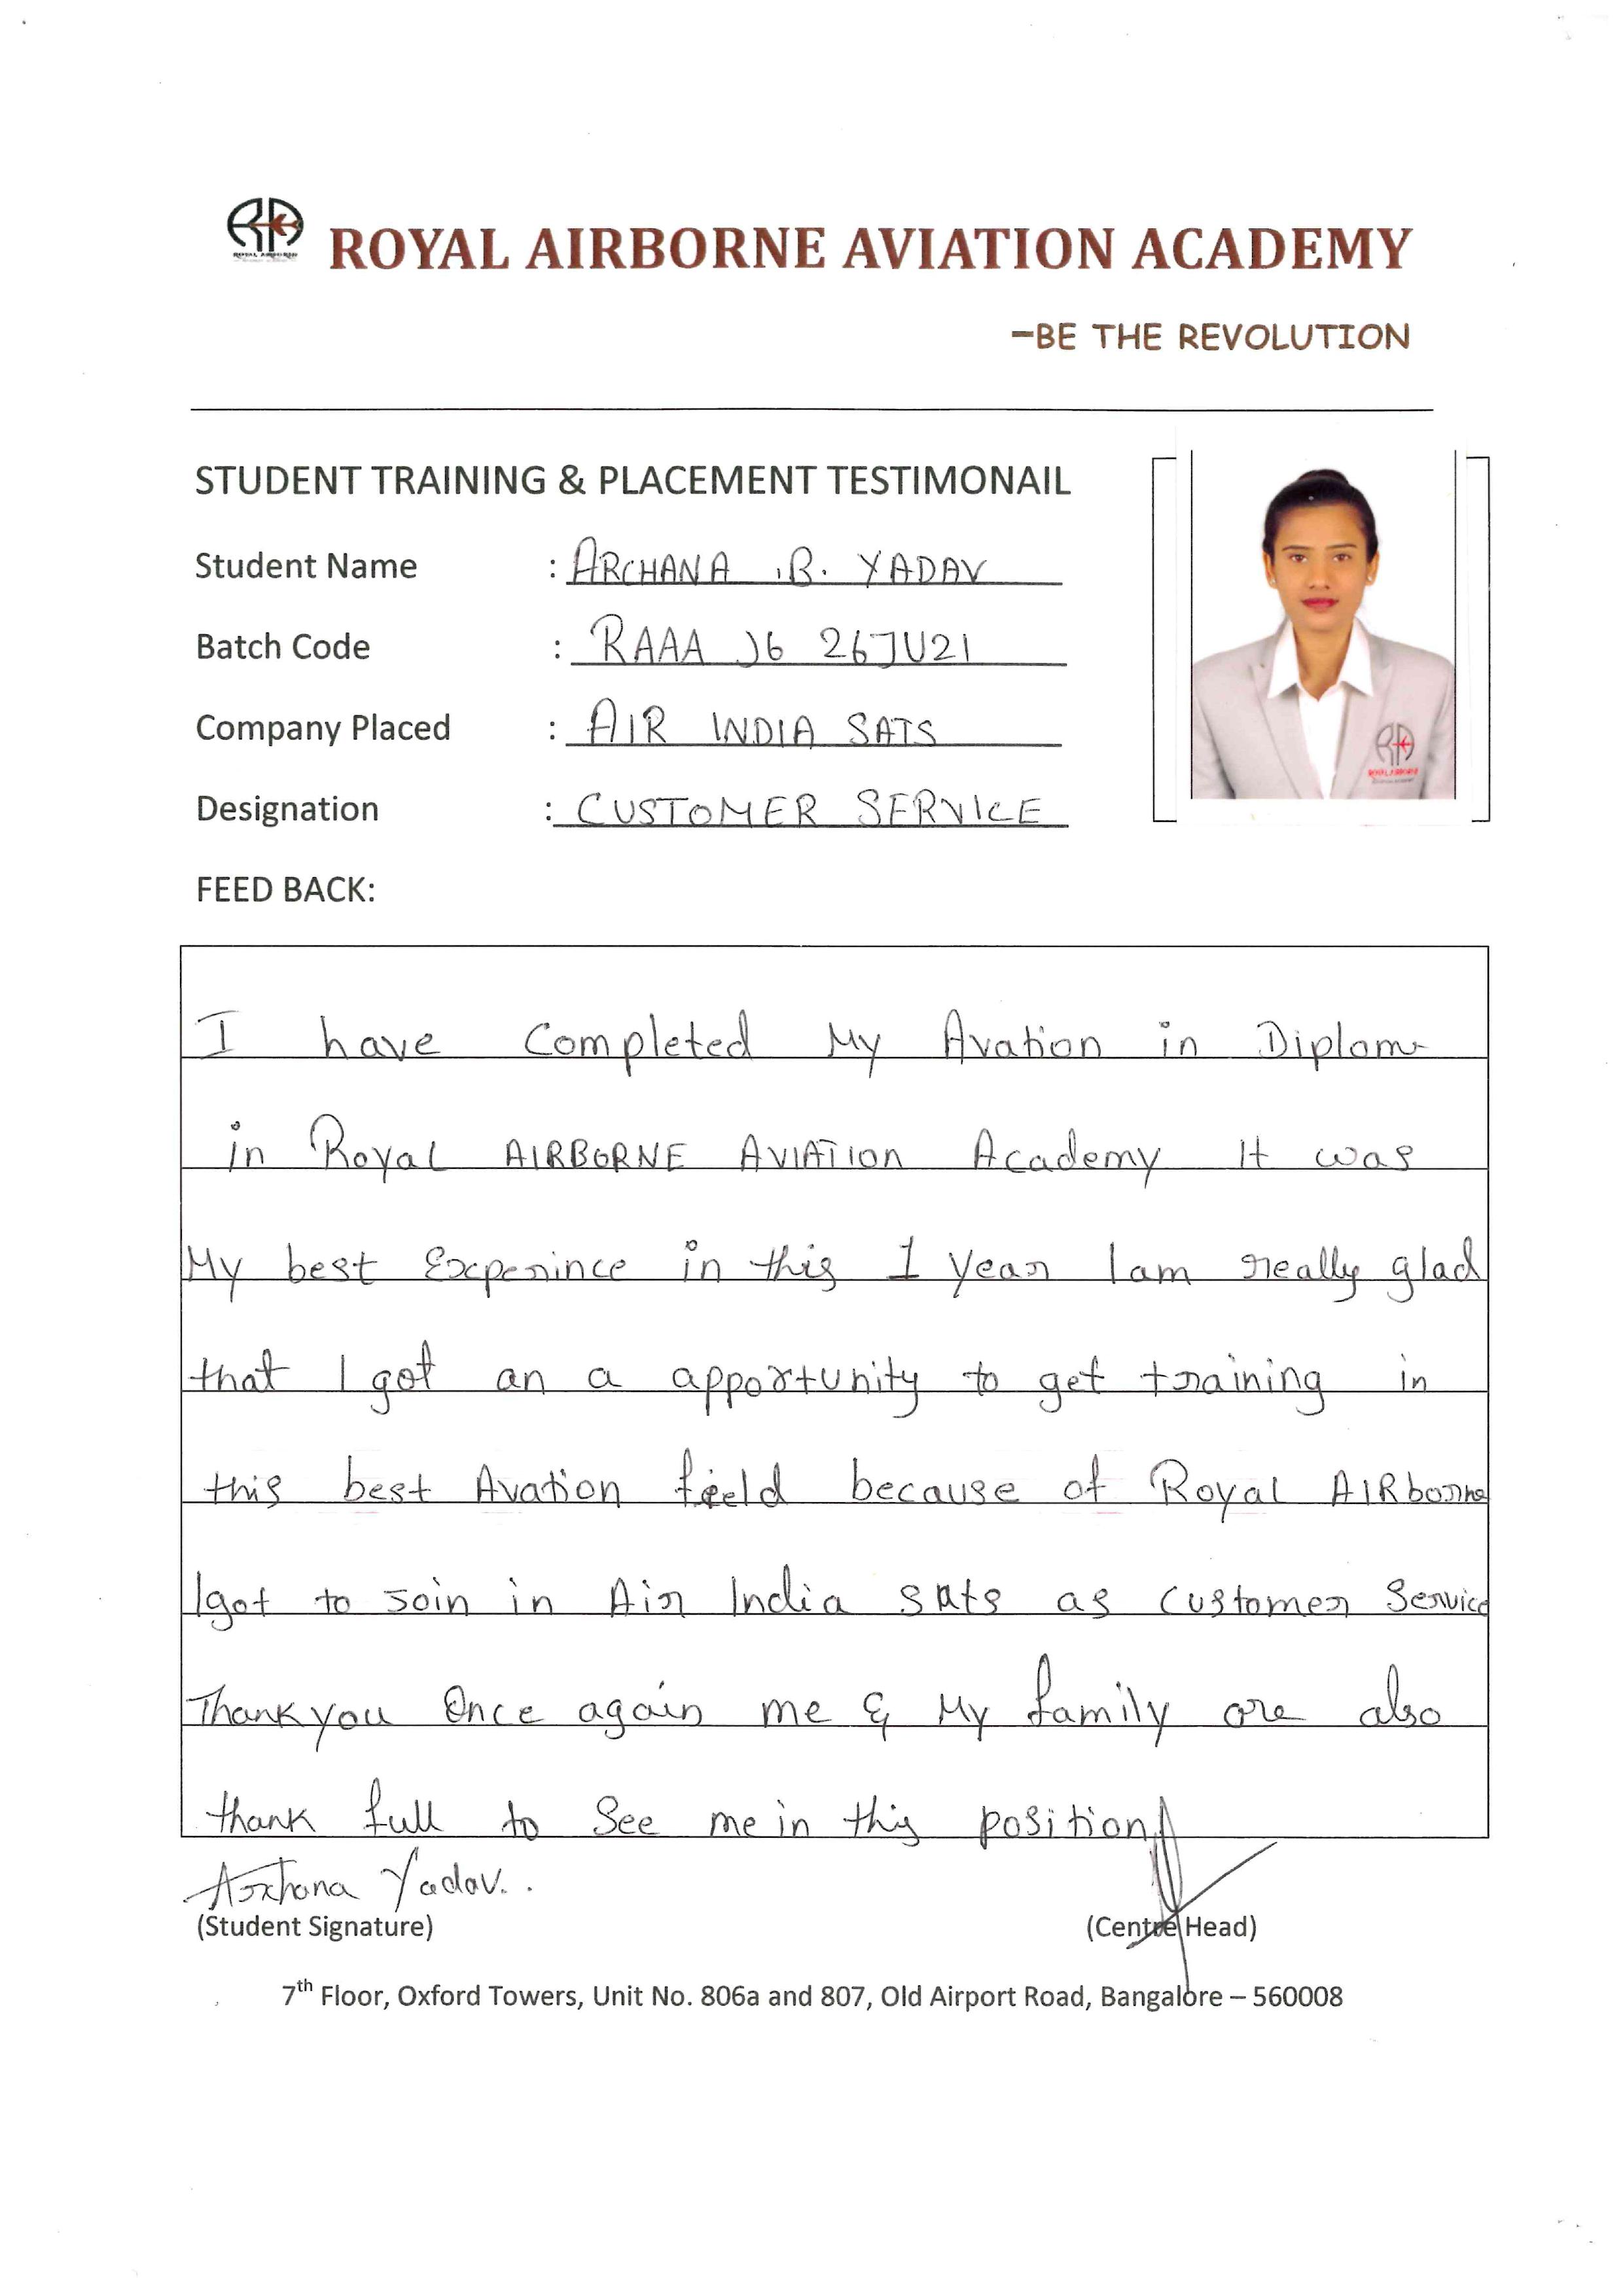 ROYAL AIRBORNE AVIATION ACADEMY
-BE THE REVOLUTION
STUDENT TRAINING & PLACEMENT TESTIMONAIL
Student Name : ARCHANA .B. YADAV
Batch Code : RAAA J6 26JU21
Company Placed : AIR INDIA SATS
Designation : CUSTOMER SERVICE
ROYAL AIRBORNE
FEED BACK:
I have Completed My Avation in Diplom
in Royal AIRBORNE AVIATION Academy It was
My best Experince in this 1 Year I am really glad
that I got an a apportunity to get training in
this best Avation field because of Royal AIRborne
I got to join in Air India Sats as Customer Service
Thank you Once again me & My family are also
thank full to See me in this position
Archana Yadav..
(Student Signature) (Centre Head)
7th Floor, Oxford Towers, Unit No. 806a and 807, Old Airport Road, Bangalore – 560008